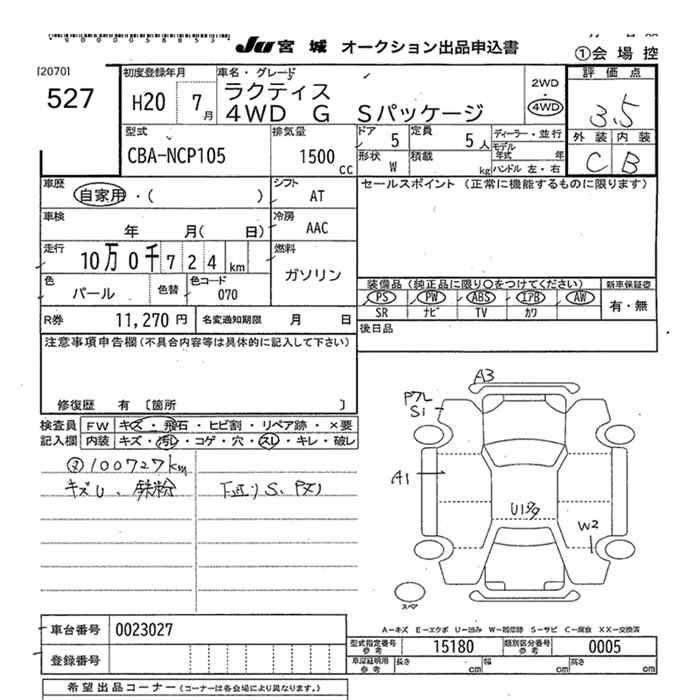 JU 宮城 オークション出品申込書
①会場控
[2070]
527
初度登録年月
H20 7月
車名・グレード
ラクティス
4WD G Sパッケージ
2WD
・
4WD
評価点
3.5
外装 内装
C B
型式
CBA-NCP105
排気量
1500 cc
ドア 5
定員 5人
ディーラー・並行
形状 W
積載 kg
モデル年式 年
ハンドル 左・右
車歴
自家用・( )
シフト
AT
セールスポイント (正常に機能するものに限ります)
車検
年 月( 日)
冷房
AAC
走行
10万0千724km
燃料
ガソリン
色
パール
色替
色コード
070
装備品 (純正品に限り○をつけてください)
新車保証書
PS PW ABS エアB AW
SR ナビ TV カワ
有・無
R券 11,270円
名変通知期限 月 日
後日品
注意事項申告欄(不具合内容等は具体的に記入して下さい)
修復歴 有 〔箇所 〕
検査員
記入欄
FW キズ・飛石・ヒビ割・リペア跡・×要
内装 キズ・汚レ・コゲ・穴・スレ・キレ・破レ
100727km
キズU、鉄粉
下廻りS、
A3
S1
A1
W2
スペア
A-キズ E-エクボ U-凹み W-補修跡 S-サビ C-腐食 XX-交換済
車台番号 0023027
登録番号
型式指定番号
参考
15180
類別区分番号
参考
0005
車庫証明用
参考
長さ cm
幅 cm
高さ cm
希望出品コーナー(コーナーは各会場により異なります。)